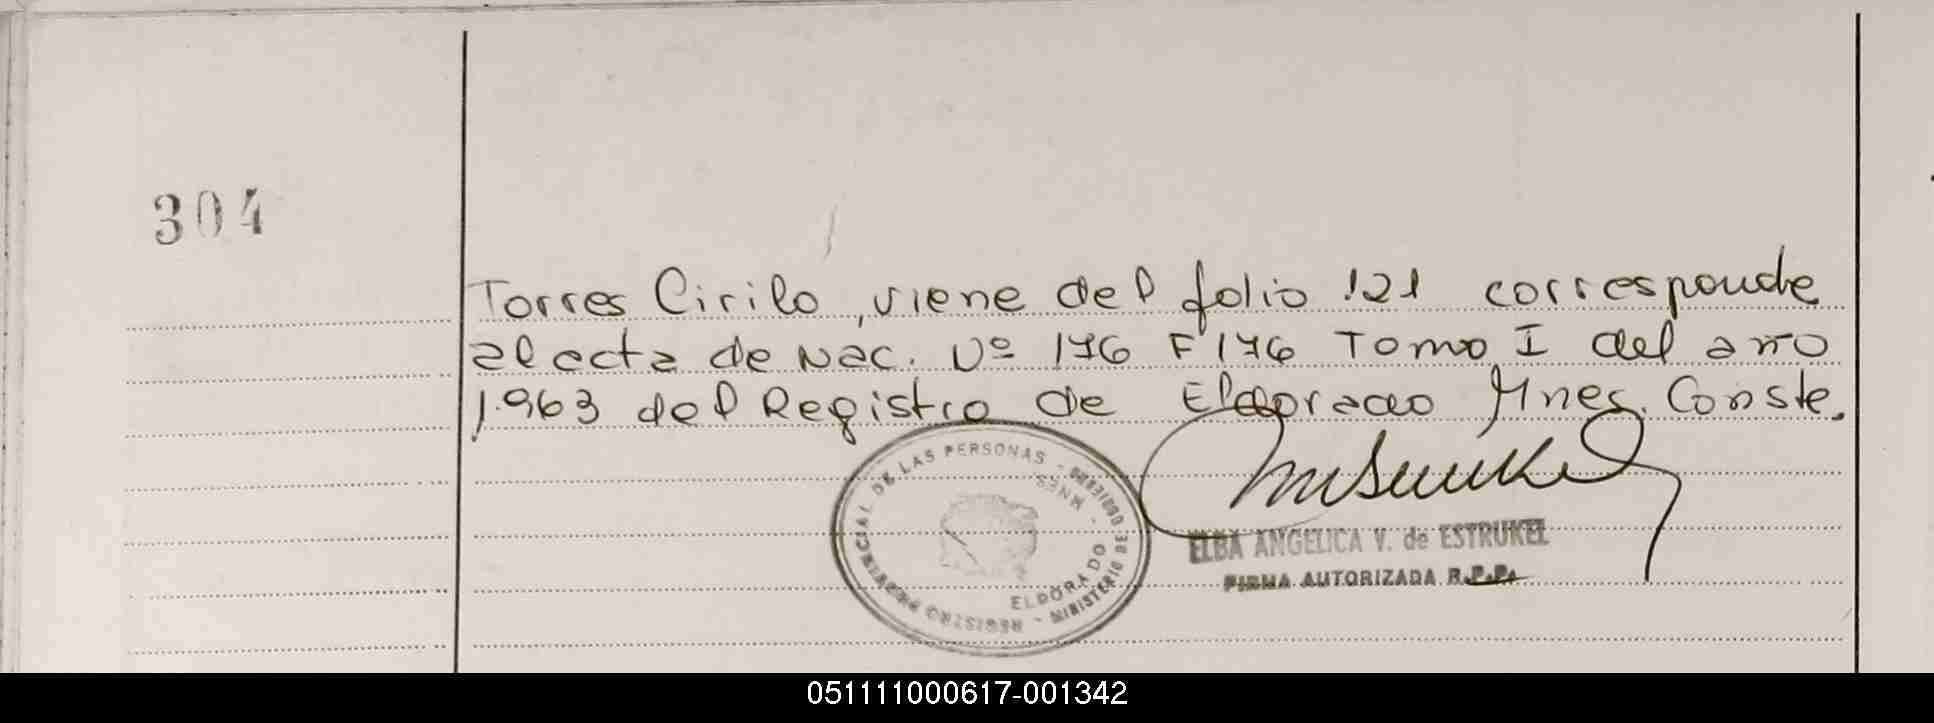 304
Torres Cirilo, viene del folio 121 corresponde
al acta de Nac. Nº 176 F 176 Tomo I del año
1.963 del Registro de Eldorado Mnes. Conste.
REGISTRO PROVINCIAL DE LAS PERSONAS - MINISTERIO DE GOBIERNO
ELDORADO - MNES
ELBA ANGELICA V. de ESTRUKEL
FIRMA AUTORIZADA R.P.P.
051111000617-001342